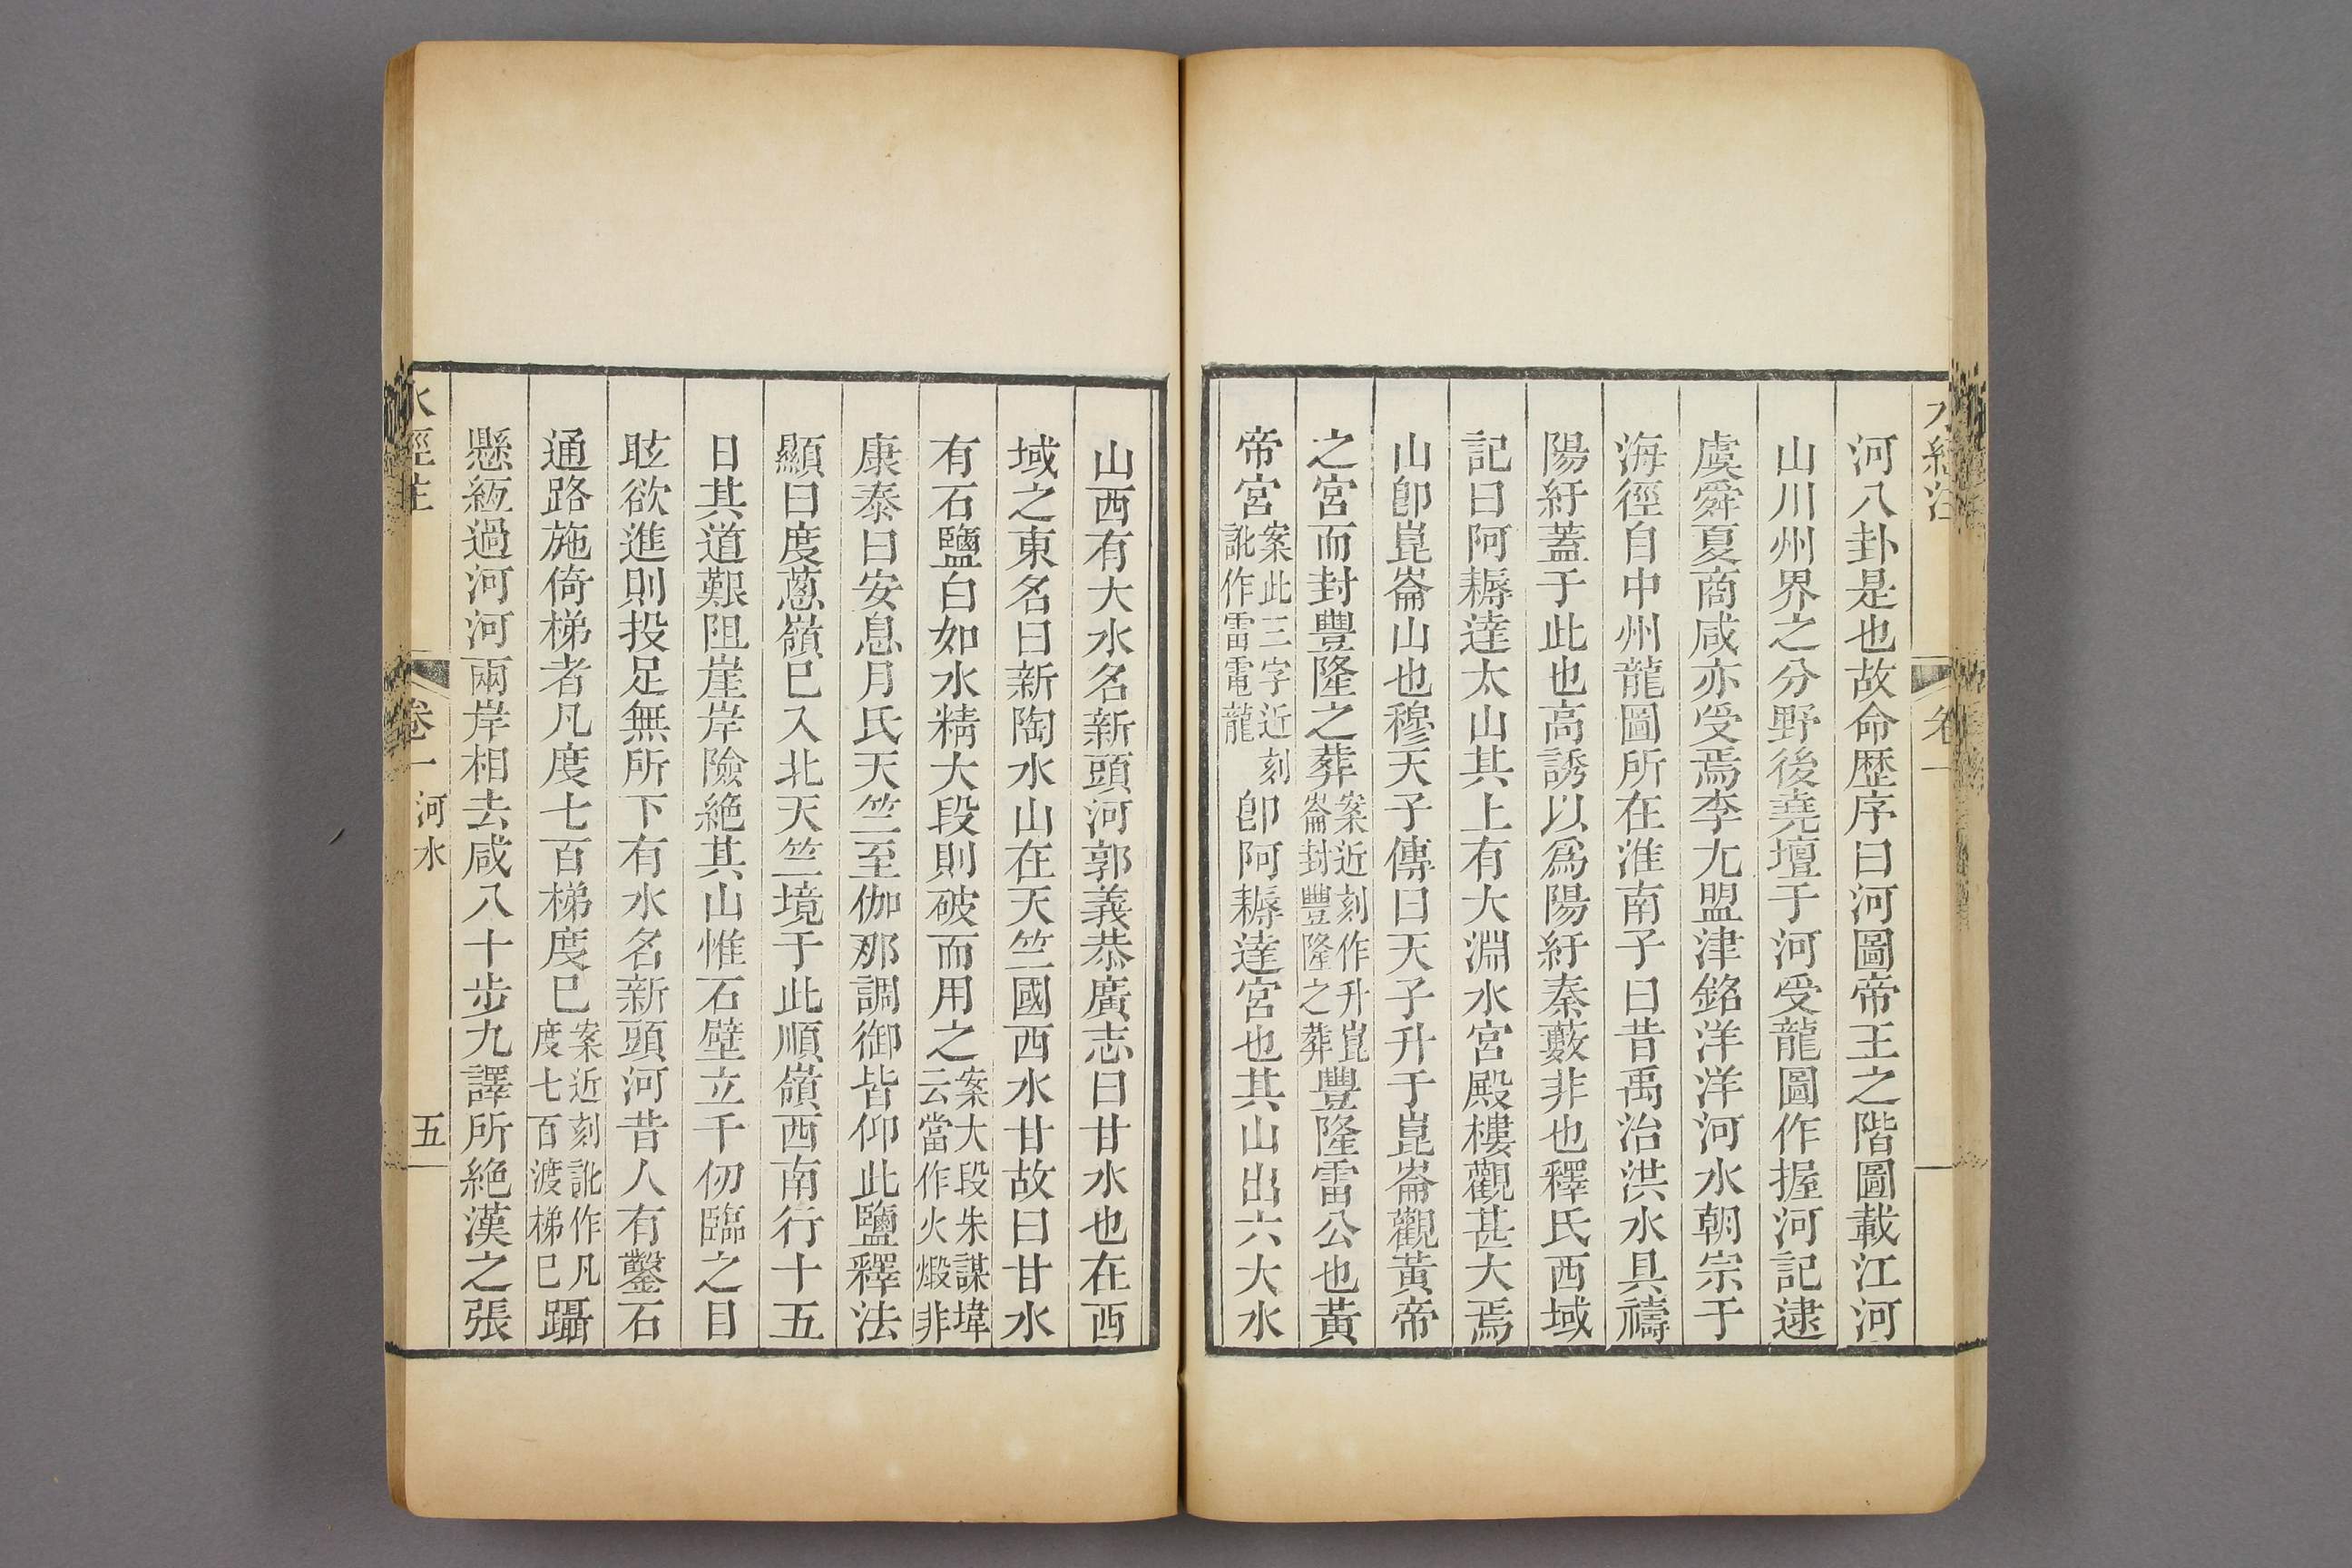 水經注
卷一
河八卦是也故命歷序曰河圖帝王之階圖載江河
山川州界之分野後堯壇于河受龍圖作握河記逮
虞舜夏商咸亦受焉李尤盟津銘洋洋河水朝宗于
海徑自中州龍圖所在淮南子曰昔禹治洪水具禱
陽紆蓋于此也高誘以爲陽紆秦藪非也釋氏西域
記曰阿耨達太山其上有大淵水宮殿樓觀甚大焉
山卽崑崙山也穆天子傳曰天子升于崑崙觀黃帝
之宮而封豐隆之葬案近刻作升崑崙封豐隆之葬豐隆雷公也黃
帝宮案此三字近刻訛作雷電龍卽阿耨達宮也其山出六大水
山西有大水名新頭河郭義恭廣志曰甘水也在西
域之東名曰新陶水山在天竺國西水甘故曰甘水
有石鹽白如水精大段則破而用之案大段朱謀㙔云當作火煅非
康泰曰安息月氏天竺至伽那調御皆仰此鹽釋法
顯曰度蔥嶺巳入北天竺境于此順嶺西南行十五
日其道艱阻崖岸險絶其山惟石壁立千仞臨之目
眩欲進則投足無所下有水名新頭河昔人有鑿石
通路施倚梯者凡度七百梯度巳案近刻訛作凡度七百渡梯巳躡
懸絚過河河兩岸相去咸八十步九譯所絶漢之張
水經注
卷一
河水
五